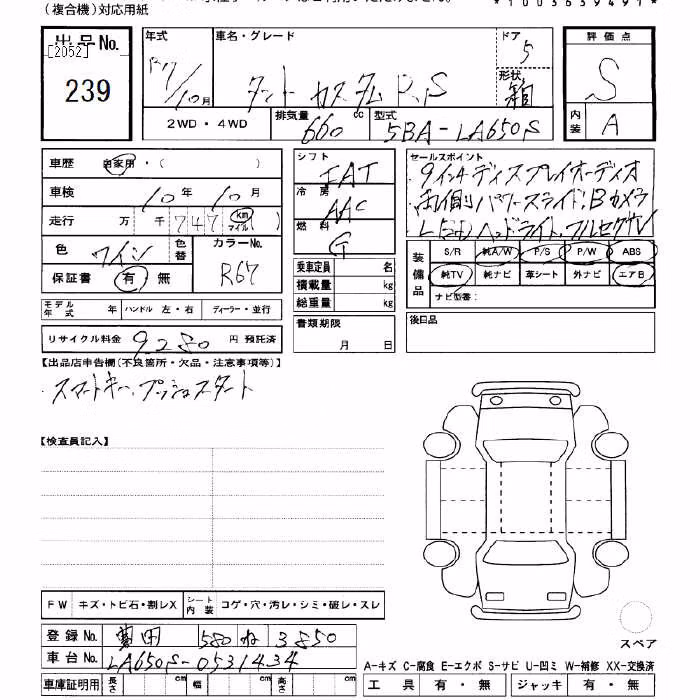 (複合機)対応用紙
*1003639491*
出品No.
[2052]
239
年式 車名・グレード ドア 5
R7/10月 タント カスタム RS 形状 箱
2WD・4WD 排気量 660 cc 型式 5BA-LA650S
評価点
S
内装 A
車歴 自家用・( )
車検 10年10月
走行 万 千 747 km マイル( )
色 ワイン 色替 カラーNo. R67
保証書 有・無
モデル年式 年 ハンドル 左・右 ディーラー・並行
リサイクル料金 9280 円 預託済
シフト FAT
冷房 AAC
燃料 G
乗車定員 名
積載量 kg
総重量 kg
書類期限
月 日
セールスポイント
9インチディスプレイオーディオ
両側パワースライド, Bカメラ
LEDヘッドライト, フルセグTV
装備品 S/R 純A/W P/S P/W ABS
純TV 純ナビ 革シート 外ナビ エアB
ナビ型番:
後日品
【出品店申告欄(不良箇所・欠品・注意事項等)】
スマートキー, プッシュスタート
【検査員記入】
FW キズ・トビ石・割レX シート内装 コゲ・穴・汚レ・シミ・破レ・スレ
登録No. 580 ね 3850
車台No. LA650S-0531434
車庫証明用 長さ cm 幅 cm 高さ cm
スペア
A-キズ C-腐食 E-エクボ S-サビ U-凹ミ W-補修 XX-交換済
工具 有・無 ジャッキ 有・無